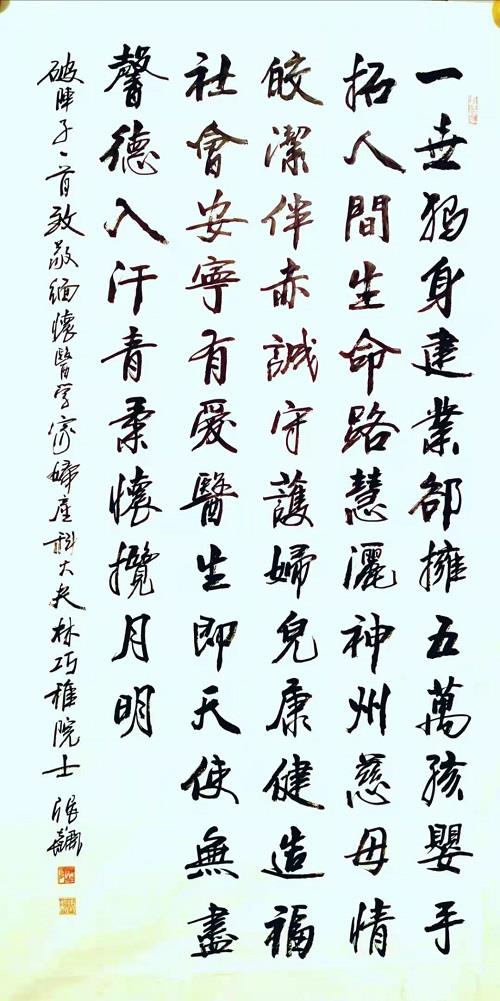 一世獨身建業卻擁五萬孩嬰手
拓人間生命路慧灑神州慈母情
皎潔伴赤誠守護婦兒康健造福
社會安寧有愛醫生即天使無盡
馨德入汗青素懷攬月明
破陣子一首致敬緬懷醫学家婦產科大夫林巧稚院士張